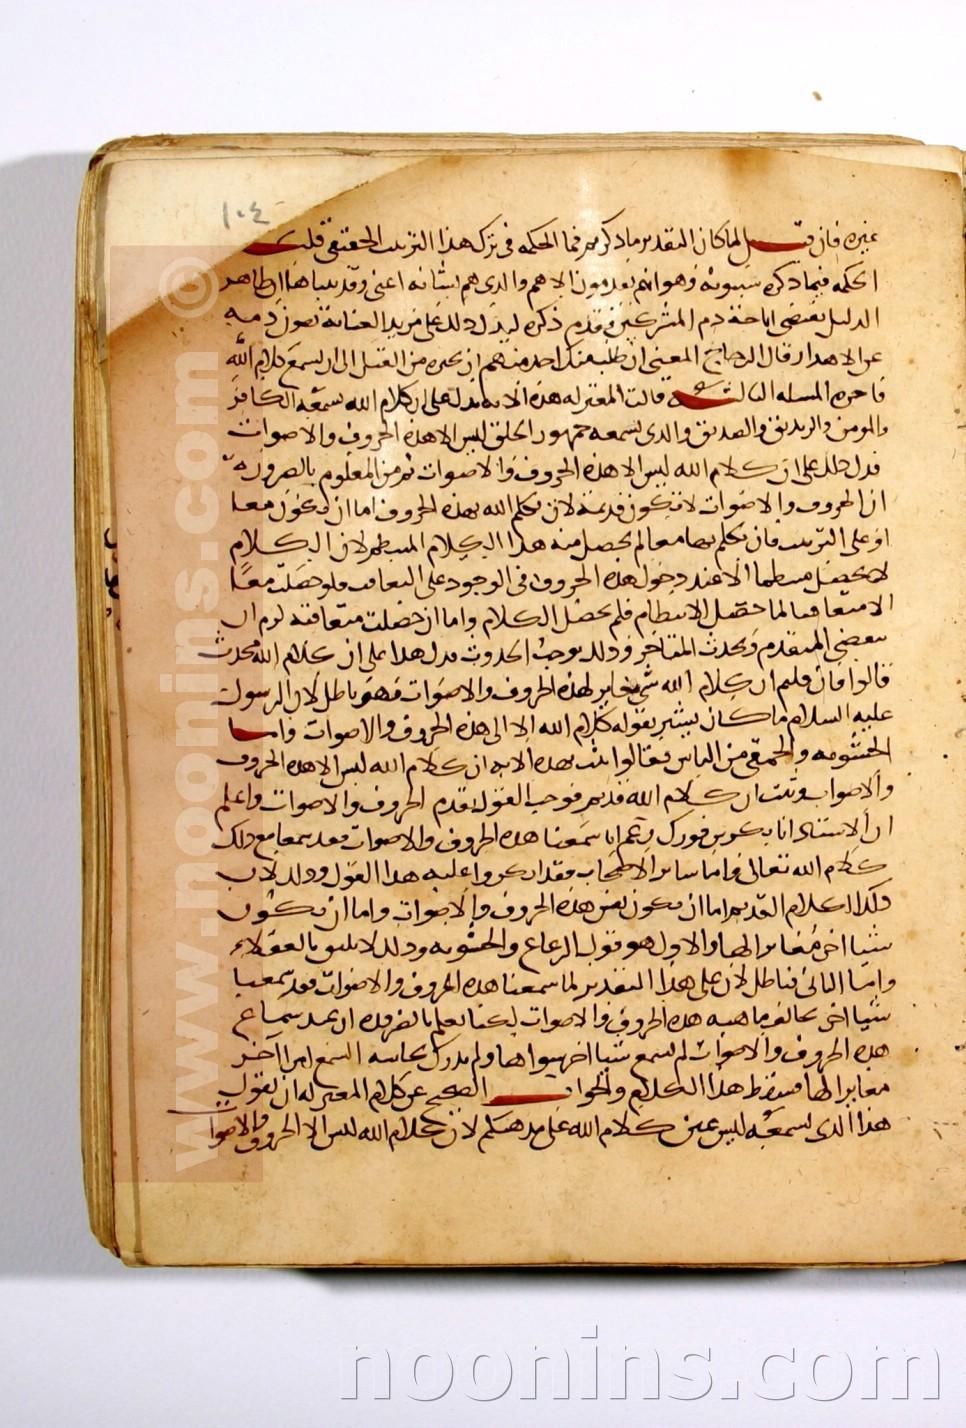 ١٠٤
غيره فان قيل لما كان التقدير ما ذكرتم فما الحكمة في ترك هذا الترتيب الحقيقي قلنا
الحكمة فيما ذكره سيبويه وهو انهم يقدمون الاهم والذي هم بشانه اعنى وقد بينا هاهنا ان ظاهر
الدليل يقتضي اباحة دم المشركين فقدم ذكره ليدل ذلك على مزيد العناية بصون دمه
عن الاهدار قال الزجاج المعنى ان طلب منك احد منهم ان تجيره من القتل الى ان يسمع كلام الله
فاجره المسئلة الثالثة قالت المعتزله هذه الآية تدل على ان كلام الله يسمعه الكافر
والمومن والزنديق والصديق والذي يسمعه جمهور الخلق ليس الا هذه الحروف والاصوات
فدل ذلك على ان كلام الله ليس الا هذه الحروف والاصوات ثم من المعلوم بالضرورة
ان الحروف والاصوات لا تكون قديمة لان تكلم الله بهذه الحروف اما ان يكون معا
او على الترتيب فان تكلم بها معا لم يحصل منه هذا الكلام المنتظم لان الكلام
لا يحصل منتظما الا عند دخول هذه الحروف في الوجود على التعاقب فلو حصلت معا
لا متعاقبا لما حصل الانتظام فلم يحصل الكلام واما ان حصلت متعاقبة لزم ان
ينقضي المتقدم ويحدث المتاخر وذلك يوجب الحدوث فدل هذا على ان كلام الله محدث
قالوا فان قلتم ان كلام الله شي مغاير لهذه الحروف والاصوات فهو باطل لان الرسول
عليه السلام ما كان يشير بقوله كلام الله الا الى هذه الحروف والاصوات واما
الحشوية والحمقى من الناس فقالوا ثبت بهذه الاية ان كلام الله ليس الا هذه الحروف
والاصوات وثبت ان كلام الله قديم فوجب القول بقدم الحروف والاصوات واعلم
ان الاستاد ابا بكر بن فورك زعم انا سمعنا هذه الحروف والاصوات فقد سمعنا مع ذلك
كلام الله تعالى فاما ساير الاصحاب فقد انكروا عليه هذا القول وذلك لان
ذلك الكلام القديم اما ان يكون نفس هذه الحروف والاصوات واما ان يكون
شيا اخر مغايرا لها والاول هو قول الرعاع والحشوية وذلك لا يليق بالعقلاء
واما الثاني فباطل لان على هذا التقدير لما سمعنا هذه الحروف والاصوات فقد سمعنا
شيا اخر يخالف ماهية هذه الحروف والاصوات لكنا نعلم بالضرورة ان عند سماع
هذه الحروف والاصوات لم نسمع شيا اخر سواها ولم ندرك بحاسة السمع امرا آخر
مغايرا لها فسقط هذا الكلام والجواب الصحيح عن كلام المعتزله ان نقول
هذا الذي نسمعه ليس عين كلام الله على مذهبكم لان كلام الله ليس الا الحروف والاصوات
www.noonins.com ©
noonins.com